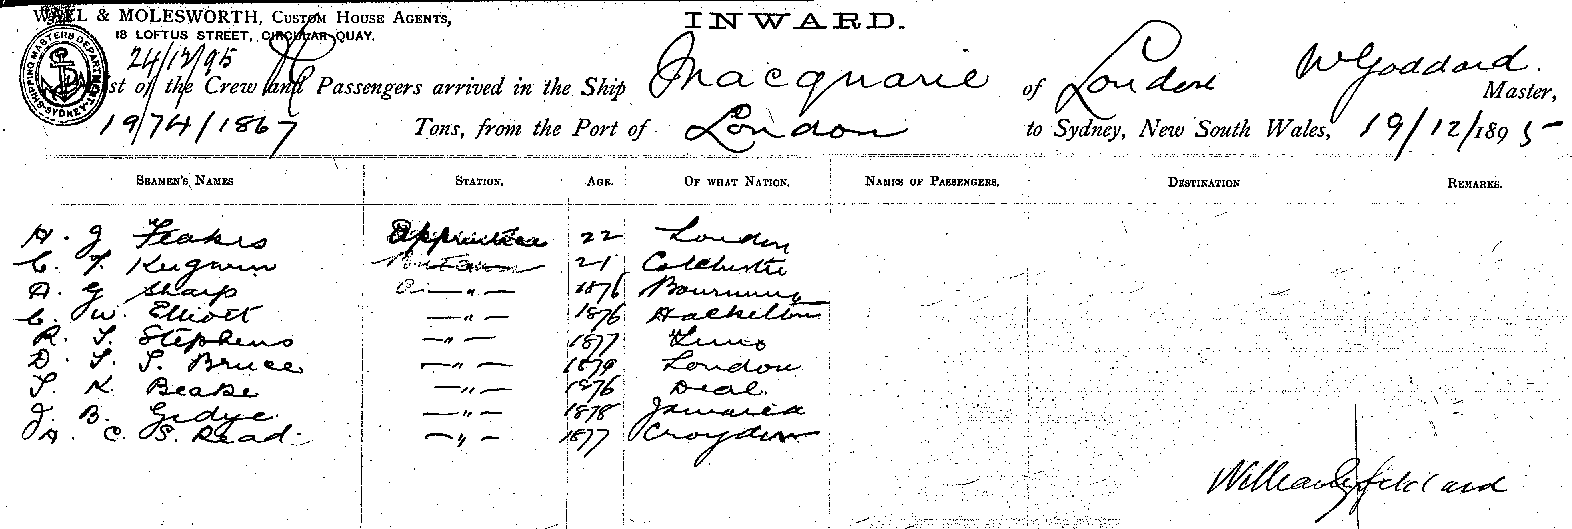 WALL & MOLESWORTH, CUSTOM HOUSE AGENTS,
18 LOFTUS STREET, CIRCULAR QUAY.
INWARD.
SHIPPING MASTERS DEPARTMENT SYDNEY
24/12/95
List of the Crew and Passengers arrived in the Ship Macquarie of London W Goddard Master,
1974/1867 Tons, from the Port of London to Sydney, New South Wales, 19/12/1895
SEAMEN'S NAMES STATION. AGE. OF WHAT NATION. NAMES OF PASSENGERS. DESTINATION REMARKS.
H. J Feakes Apprentice 22 London
C. F. Kugwin 21 Colchester
A. G Sharp —"— 1876
C. W. Elliott —"— 1876
R. S. Stephens —"— 1877
D. S. S. Bruce —"— 1879 London
S. K. Beake —"— 1876 Deal
J. B. Gedye —"— 1878 Jamaica
A. C. S. Read —"— 1877 Croydon
William Goddard